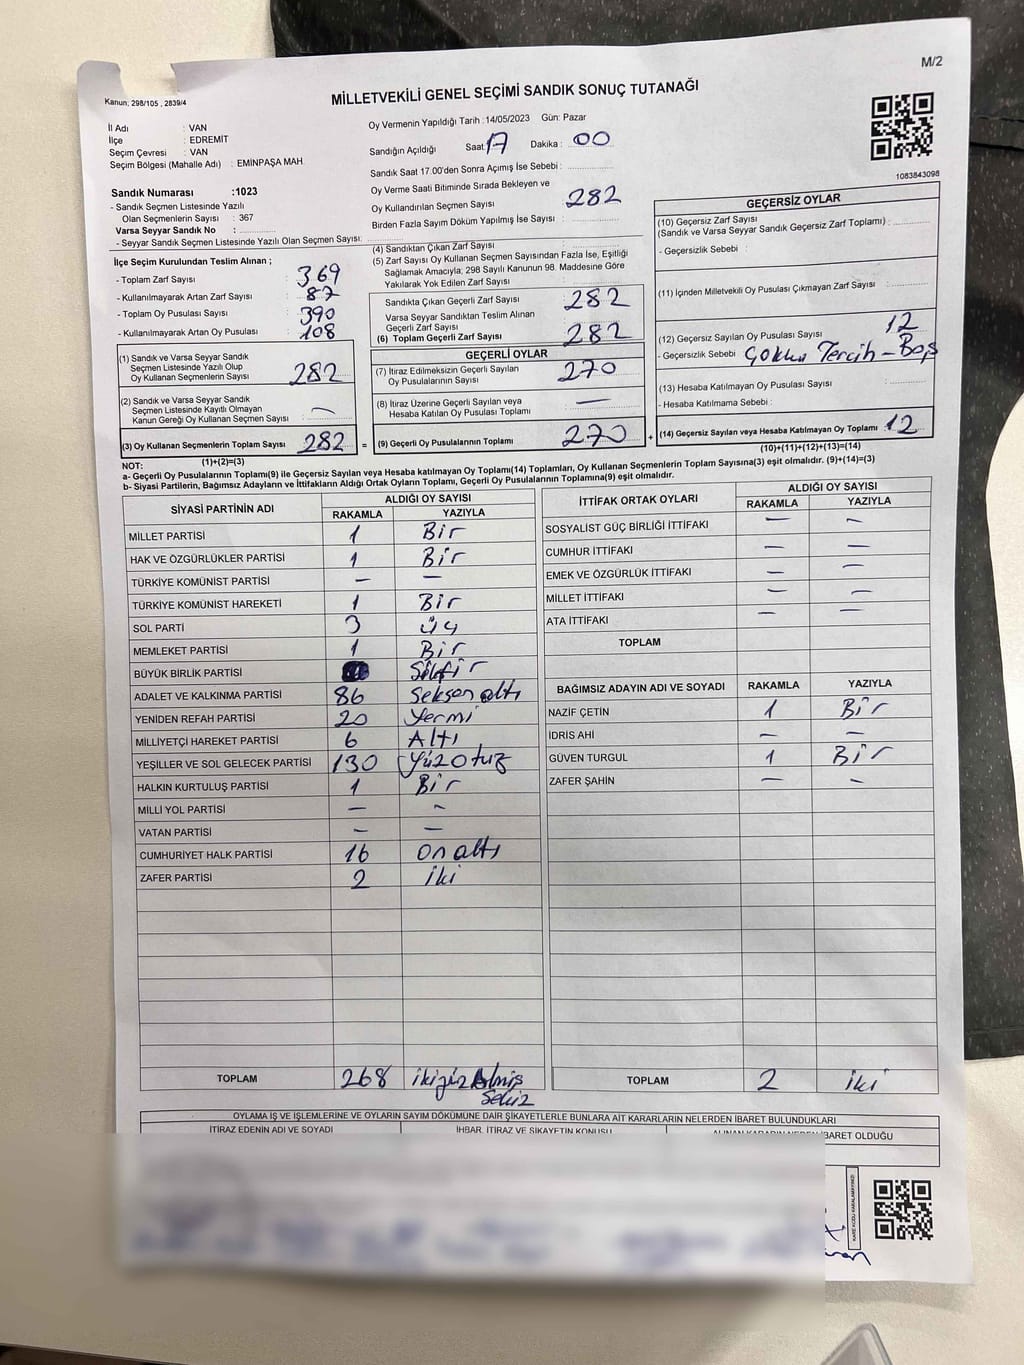 M/2
Kanun; 298/105 , 2839/4
MİLLETVEKİLİ GENEL SEÇİMİ SANDIK SONUÇ TUTANAĞI
İl Adı : VAN
İlçe : EDREMİT
Seçim Çevresi : VAN
Seçim Bölgesi (Mahalle Adı) : EMİNPAŞA MAH.
Sandık Numarası :1023
- Sandık Seçmen Listesinde Yazılı
Olan Seçmenlerin Sayısı : 367
Varsa Seyyar Sandık No :
- Seyyar Sandık Seçmen Listesinde Yazılı Olan Seçmen Sayısı:
Oy Vermenin Yapıldığı Tarih : 14/05/2023 Gün: Pazar
Sandığın Açıldığı Saat: 17 Dakika : 00
Sandık Saat 17.00'den Sonra Açımış İse Sebebi :
Oy Verme Saati Bitiminde Sırada Bekleyen ve
Oy Kullandırılan Seçmen Sayısı : 282
Birden Fazla Sayım Döküm Yapılmış İse Sayısı :
1083843098
İlçe Seçim Kurulundan Teslim Alınan ;
- Toplam Zarf Sayısı : 369
- Kullanılmayarak Artan Zarf Sayısı : 87
- Toplam Oy Pusulası Sayısı : 390
- Kullanılmayarak Artan Oy Pusulası : 108
(1) Sandık ve Varsa Seyyar Sandık
Seçmen Listesinde Yazılı Olup
Oy Kullanan Seçmenlerin Sayısı : 282
(2) Sandık ve Varsa Seyyar Sandık
Seçmen Listesinde Kayıtlı Olmayan
Kanun Gereği Oy Kullanan Seçmen Sayısı : —
(3) Oy Kullanan Seçmenlerin Toplam Sayısı : 282 =
(1)+(2)=(3)
(4) Sandıktan Çıkan Zarf Sayısı :
(5) Zarf Sayısı Oy Kullanan Seçmen Sayısından Fazla İse, Eşitliği
Sağlamak Amacıyla; 298 Sayılı Kanunun 98. Maddesine Göre
Yakılarak Yok Edilen Zarf Sayısı :
Sandıkta Çıkan Geçerli Zarf Sayısı : 282
Varsa Seyyar Sandıktan Teslim Alınan
Geçerli Zarf Sayısı :
(6) Toplam Geçerli Zarf Sayısı : 282
GEÇERLİ OYLAR
(7) İtiraz Edilmeksizin Geçerli Sayılan
Oy Pusulalarının Sayısı : 270
(8) İtiraz Üzerine Geçerli Sayılan veya
Hesaba Katılan Oy Pusulası Toplamı : —
(9) Geçerli Oy Pusulalarının Toplamı : 270 +
GEÇERSİZ OYLAR
(10) Geçersiz Zarf Sayısı
(Sandık ve Varsa Seyyar Sandık Geçersiz Zarf Toplamı) :
- Geçersizlik Sebebi :
(11) İçinden Milletvekili Oy Pusulası Çıkmayan Zarf Sayısı :
(12) Geçersiz Sayılan Oy Pusulası Sayısı : 12
- Geçersizlik Sebebi : Çoklu Tercih – Boş
(13) Hesaba Katılmayan Oy Pusulası Sayısı :
- Hesaba Katılmama Sebebi :
(14) Geçersiz Sayılan veya Hesaba Katılmayan Oy Toplamı : 12
(10)+(11)+(12)+(13)=(14)
NOT:
a- Geçerli Oy Pusulalarının Toplamı(9) ile Geçersiz Sayılan veya Hesaba katılmayan Oy Toplamı(14) Toplamları, Oy Kullanan Seçmenlerin Toplam Sayısına(3) eşit olmalıdır. (9)+(14)=(3)
b- Siyasi Partilerin, Bağımsız Adayların ve İttifakların Aldığı Ortak Oyların Toplamı, Geçerli Oy Pusulalarının Toplamına(9) eşit olmalıdır.
SİYASİ PARTİNİN ADI ALDIĞI OY SAYISI
RAKAMLA YAZIYLA
MİLLET PARTİSİ 1 Bir
HAK VE ÖZGÜRLÜKLER PARTİSİ 1 Bir
TÜRKİYE KOMÜNİST PARTİSİ — —
TÜRKİYE KOMÜNİST HAREKETİ 1 Bir
SOL PARTİ 3 üç
MEMLEKET PARTİSİ 1 Bir
BÜYÜK BİRLİK PARTİSİ
ADALET VE KALKINMA PARTİSİ 86 Seksen altı
YENİDEN REFAH PARTİSİ 20 Yermi
MİLLİYETÇİ HAREKET PARTİSİ 6 Altı
YEŞİLLER VE SOL GELECEK PARTİSİ 130 Yüz otuz
HALKIN KURTULUŞ PARTİSİ 1 Bir
MİLLİ YOL PARTİSİ — —
VATAN PARTİSİ — —
CUMHURİYET HALK PARTİSİ 16 on altı
ZAFER PARTİSİ 2 iki
TOPLAM 268
Sekiz
İTTİFAK ORTAK OYLARI ALDIĞI OY SAYISI
RAKAMLA YAZIYLA
SOSYALİST GÜÇ BİRLİĞİ İTTİFAKI — —
CUMHUR İTTİFAKI — —
EMEK VE ÖZGÜRLÜK İTTİFAKI — —
MİLLET İTTİFAKI — —
ATA İTTİFAKI — —
TOPLAM
BAĞIMSIZ ADAYIN ADI VE SOYADI RAKAMLA YAZIYLA
NAZİF ÇETİN 1 Bir
İDRİS AHİ — —
GÜVEN TURGUL 1 Bir
ZAFER ŞAHİN — —
TOPLAM 2 iki
OYLAMA İŞ VE İŞLEMLERİNE VE OYLARIN SAYIM DÖKÜMÜNE DAİR ŞİKAYETLERLE BUNLARA AİT KARARLARIN NELERDEN İBARET BULUNDUKLARI
İTİRAZ EDENİN ADI VE SOYADI İHBAR, İTİRAZ VE ŞİKAYETİN KONUSU ALINAN KARARIN NEDEN İBARET OLDUĞU
KARE KODU KARALAMAYINIZ!